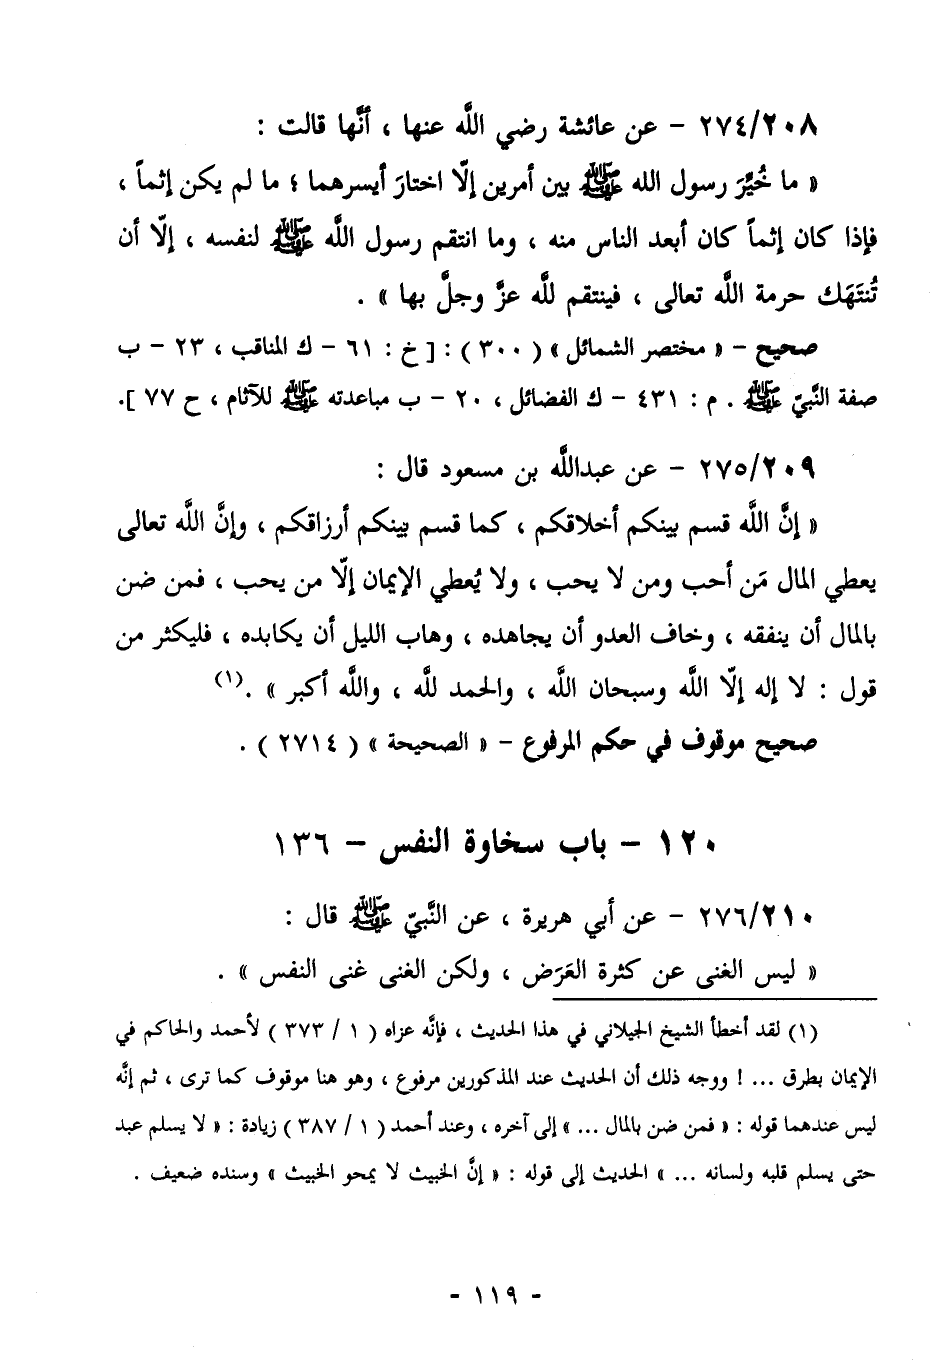 ٢٧٤/٢٠٨ – عن عائشة رضي اللَّه عنها ، أنَّها قالت :
« ما خُيِّرَ رسول الله ﷺ بين أمرين إلّا اختارَ أيسرهما ؛ ما لم يكن إثماً ،
فإذا كان إثماً كان أبعد الناس منه ، وما انتقم رسول اللَّه ﷺ لنفسه ، إلّا أن
تُنتَهَك حرمة اللَّه تعالى ، فينتقم للَّه عزَّ وجلَّ بها » .
صحيح – « مختصر الشمائل » ( ٣٠٠ ) : [ خ : ٦١ – ك المناقب ، ٢٣ – ب
صفة النَّبيّ ﷺ . م : ٤٣١ – ك الفضائل ، ٢٠ – ب مباعدته ﷺ للآثام ، ح ٧٧ ].
٢٧٥/٢٠٩ – عن عبداللَّه بن مسعود قال :
« إنَّ اللَّه قسم بينكم أخلاقكم ، كما قسم بينكم أرزاقكم ، وإنَّ اللَّه تعالى
يعطي المال مَن أحب ومن لا يحب ، ولا يُعطي الإيمان إلّا من يحب ، فمن ضن
بالمال أن ينفقه ، وخاف العدو أن يجاهده ، وهاب الليل أن يكابده ، فليكثر من
قول : لا إله إلّا اللَّه وسبحان اللَّه ، والحمد للَّه ، واللَّه أكبر » .(١)
صحيح موقوف في حكم المرفوع – « الصحيحة » ( ٢٧١٤ ) .
١٢٠ – باب سخاوة النفس – ١٣٦
٢٧٦/٢١٠ – عن أبي هريرة ، عن النَّبيّ ﷺ قال :
« ليس الغنى عن كثرة العَرَض ، ولكن الغنى غنى النفس » .
(١) لقد أخطأ الشيخ الجيلاني في هذا الحديث ، فإنَّه عزاه ( ١ / ٣٧٣ ) لأحمد والحاكم في
الإيمان بطرق ... ! ووجه ذلك أن الحديث عند المذكورين مرفوع ، وهو هنا موقوف كما ترى ، ثم إنَّه
ليس عندهما قوله : « فمن ضن بالمال ... » إلى آخره ، وعند أحمد ( ١ / ٣٨٧ ) زيادة : « لا يسلم عبد
حتى يسلم قلبه ولسانه ... » الحديث إلى قوله : « إنَّ الخبيث لا يمحو الخبيث » وسنده ضعيف .
- ١١٩ -